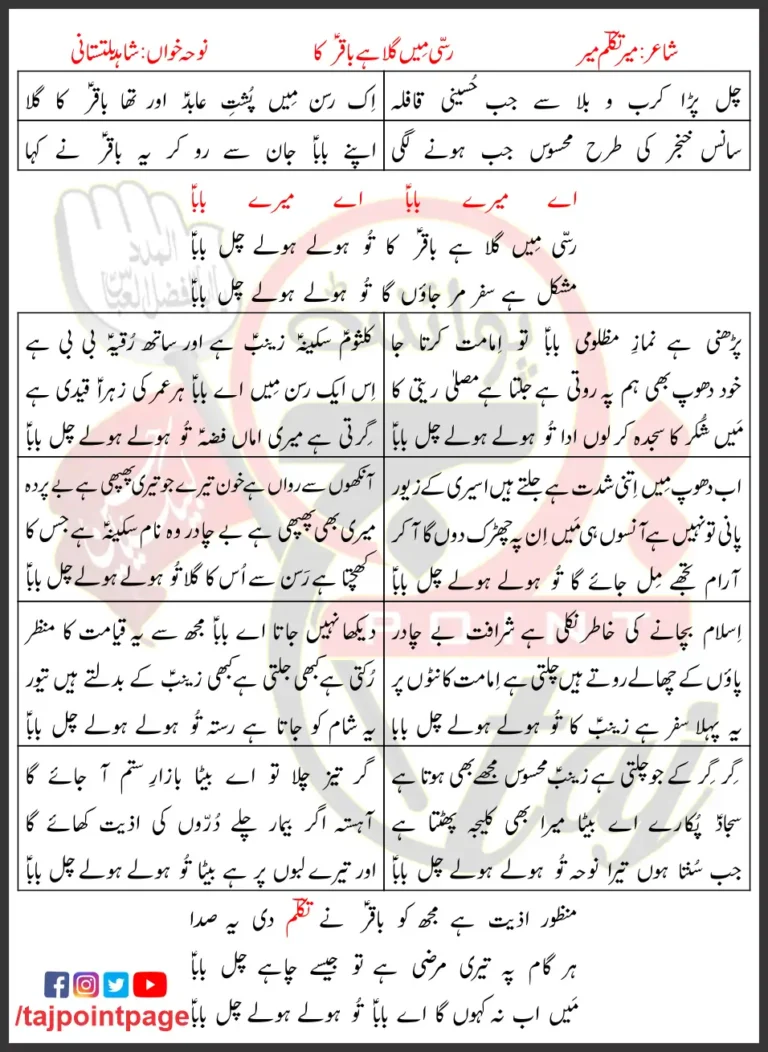 شاعر: میر تکلّم میر رسّی مِیں گلا ہے باقرؑ کا نوحہ خواں: شاہد بلتستانی
چل پڑا کرب و بلا سے جب حُسینی قافلہ اِک رسن مِیں پُشتِ عابدؑ اور تھا باقرؑ کا گلا
سانس خنجر کی طرح محسوس جب ہونے لگی اپنے باباؑ جان سے رو کر یہ باقرؑ نے کہا
اے میرے باباؑ اے میرے باباؑ
رسّی مِیں گلا ہے باقرؑ کا تُو ہولے ہولے چل باباؑ
مشکل ہے سفر مر جاؤں گا تُو ہولے ہولے چل باباؑ
پڑھنی ہے نمازِ مظلومی باباؑ تو اِمامت کرتا جا کلثومؑ سکینہؑ زینبؑ ہے اور ساتھ رُقیہؑ بی بی ہے
خود دھوپ بھی ہم پہ روتی ہے جلتا ہے مصلیٰ ریتی کا اِس ایک رسن مِیں اے باباؑ ہر عمر کی زہراؑ قیدی ہے
مَیں شُکر کا سجدہ کر لوں ادا تُو ہولے ہولے چل باباؑ گِرتی ہے میری اماں فضہؑ تُو ہولے ہولے چل باباؑ
اب دھوپ مِیں اِتنی شدت ہے جلتے ہیں اسیری کے زیور آنکھوں سے رواں ہے خون تیرے جو تیری پھپھی ہے بے پردہ
پانی تو نہیں ہے آنسوں ہی مَیں اِن پہ چھڑک دوں گا آ کر میری بھی پھپھی ہے بے چادر وہ نام سکینہؑ ہے جس کا
آرام تجھے مِل جائے گا تُو ہولے ہولے چل باباؑ کھچتا ہے رَسن سے اُس کا گلا تُو ہولے ہولے چل باباؑ
اِسلام بچانے کی خاطر نکلی ہے شرافت بے چادر دیکھا نہیں جاتا اے باباؑ مجھ سے یہ قیامت کا منظر
پاؤں کے چھالے روتے ہیں چلتی ہے اِمامت کانٹوں پر رُکتی ہے کبھی جلتی ہے کبھی زینبؑ کے بدلتے ہیں تیور
یہ پہلا سفر ہے زینبؑ کا تُو ہولے ہولے چل بابا یہ شام کو جاتا ہے رستہ تُو ہولے ہولے چل باباؑ
گِر گِر کے جو چلتی ہے زینبؑ محسوس مجھے بھی ہوتا ہے گر تیز چلا تو اے بیٹا بازارِ ستم آ جائے گا
سجادؑ پُکارے اے بیٹا میرا بھی کلیجہ پھٹتا ہے آہستہ اگر بیمار چلے دُرّوں کی اذیت کھائے گا
جب سُنتا ہوں تیرا نوحہ تُو ہولے ہولے چل باباؑ اور تیرے لبوں پر ہے بیٹا تُو ہولے ہولے چل باباؑ
منظور اذیت ہے مجھ کو باقرؑ نے تکلّم دی یہ صدا
ہر گام پہ تیری مرضی ہے تو جیسے چاہے چل باباؑ
مَیں اب نہ کہوں گا اے باباؑ تُو ہولے ہولے چل باباؑ
/tajpointpage
المدد
یا ابوالفضل العباسؑ
پوائنٹ
POINT
taj